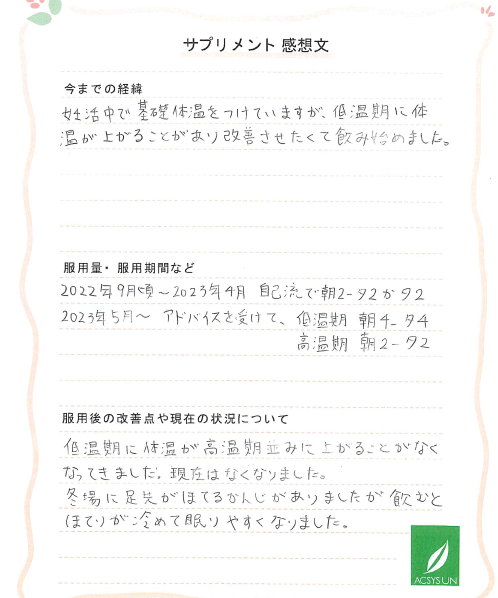 サプリメント 感想文
今までの経緯
妊活中で基礎体温をつけていますが、低温期に体
温が上がることがあり改善させたくて飲み始めました。
服用量・服用期間など
2022年9月頃～2023年4月 自己流で朝2-夕2か夕2
2023年5月～ アドバイスを受けて、低温期 朝4-夕4
高温期 朝2-夕2
服用後の改善点や現在の状況について
低温期に体温が高温期並みに上がることがなく
なってきました。現在はなくなりました。
冬場に足先がほてるかんじがありましたが飲むと
ほてりが冷めて眠りやすくなりました。
ACSYSUN